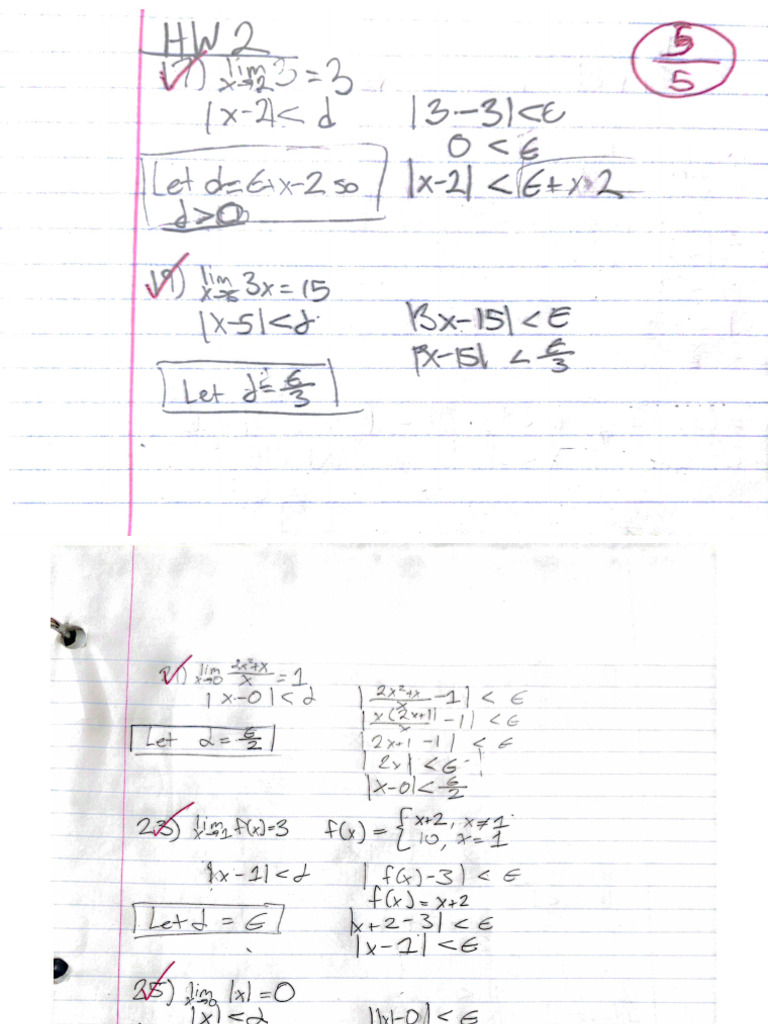 HW 2
5
5
17) lim x→2 3 = 3
|x-2| < d |3-3| < ε
0 < ε
Let d = ε+x-2 so |x-2| < ε+x-2
d>0
19) lim x→5 3x = 15
|x-5| < d |3x-15| < ε
|x-15| < ε/3
Let d = ε/3
21) lim x→0 2x²+x/x = 1
|x-0| < d |2x²+x/x - 1| < ε
|x(2x+1)/x - 1| < ε
Let d = ε/2 |2x+1 - 1| < ε
|2x| < ε
|x-0| < ε/2
23) lim x→1 f(x)=3 f(x) = { x+2, x≠1
10, x=1
|x-1| < d |f(x)-3| < ε
f(x) = x+2
Let d = ε |x+2-3| < ε
|x-1| < ε
25) lim x→0 |x| = 0
|x| < d ||x|-0| < ε